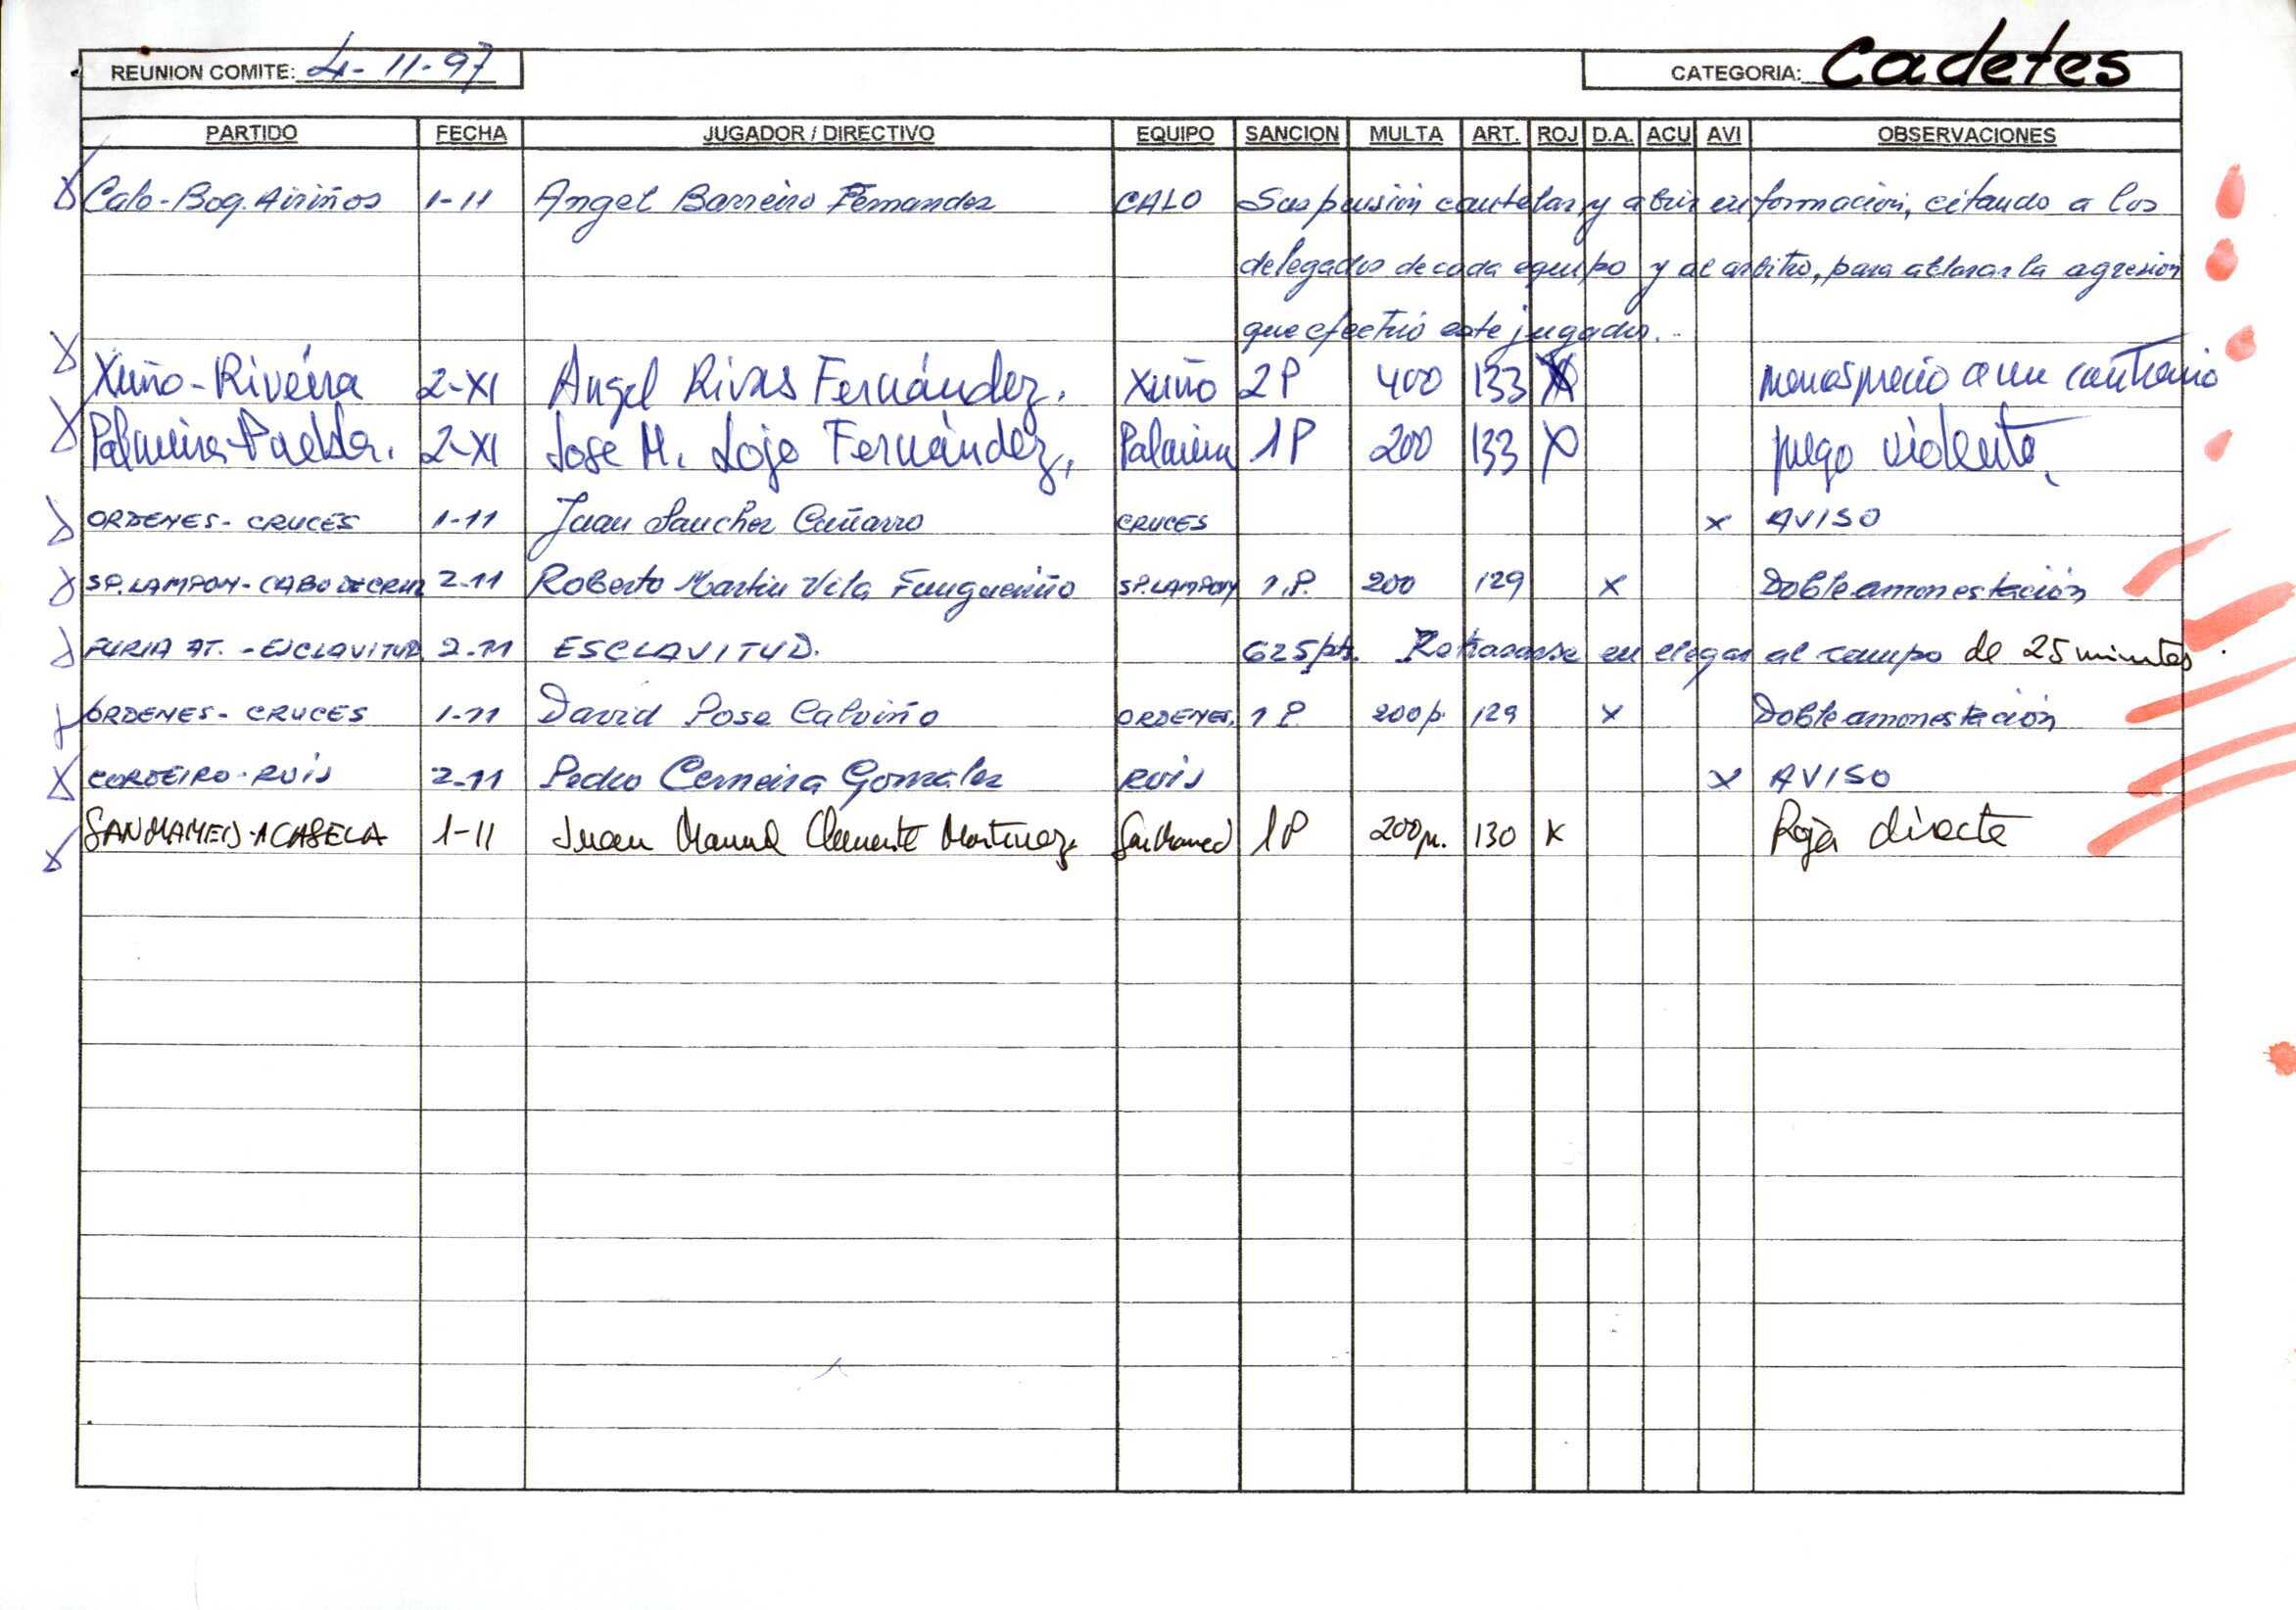 REUNION COMITE: 4-11-97 CATEGORIA: Cadetes
PARTIDO FECHA JUGADOR / DIRECTIVO EQUIPO SANCION MULTA ART. ROJ D.A. ACU AVI OBSERVACIONES
Calo-Boq. Airiños 1-11 Angel Barreiro Fernandez CALO Suspensión cautelar y abrir información, citando a los
delegados de cada equipo y al arbitro, para aclarar la agresion
que efectuó este jugador.
Xuño-Riveira 2-XI Angel Rivas Fernández. Xuño 2P 400 133 X menosprecio a un contrario
Palmeira- 2-XI Jose M. Lojo Fernández, Palmeira 1P 200 133 X juego violento.
ORDENES- CRUCES 1-11 Juan Sanchez CRUCES x AVISO
SP. LAMPON- CABO DE CRUZ 2-11 Roberto Martin Vila Fungueiriño SP. LAMPON 1.P. 200 129 x Doble amonestación
FURIA AT. - ESCLAVITUD 2-11 ESCLAVITUD. 625 pts. Retrasarse en llegar al campo de 25 minutos.
ORDENES- CRUCES 1-11 David Pose Calviño ORDENES. 1 P. 200 p. 129 x Doble amonestación
CORDEIRO-ROIS 2-11 Pedro Cerneira Gonzalez ROIS x AVISO
SAN MAMED-A CASELA 1-11 Juan Manuel Clemente Martinez San Mamed 1P 200 p. 130 x Roja directa